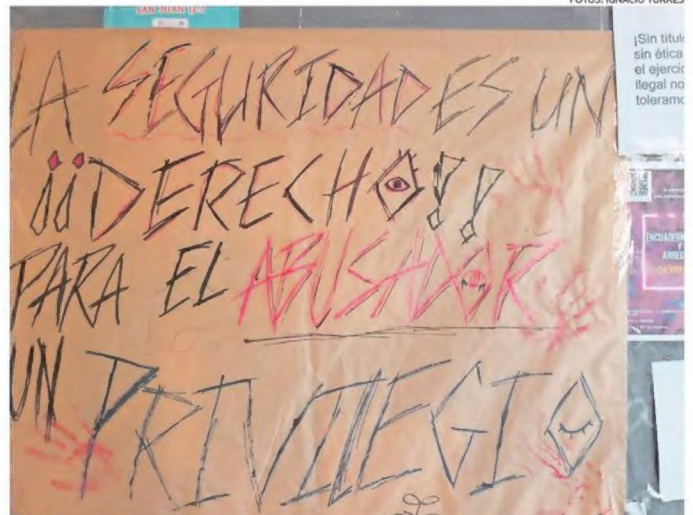 FOTOS: IGNACIO TORRES
SAN JUAN
LA SEGURIDAD ES UN
¡¡DERECHO!!
PARA EL ABUSADOR
UN PRIVILEGIO
¡Sin título
sin ética
el ejercic
ilegal no
toleramo
ENCUADERN
Y
ARREG